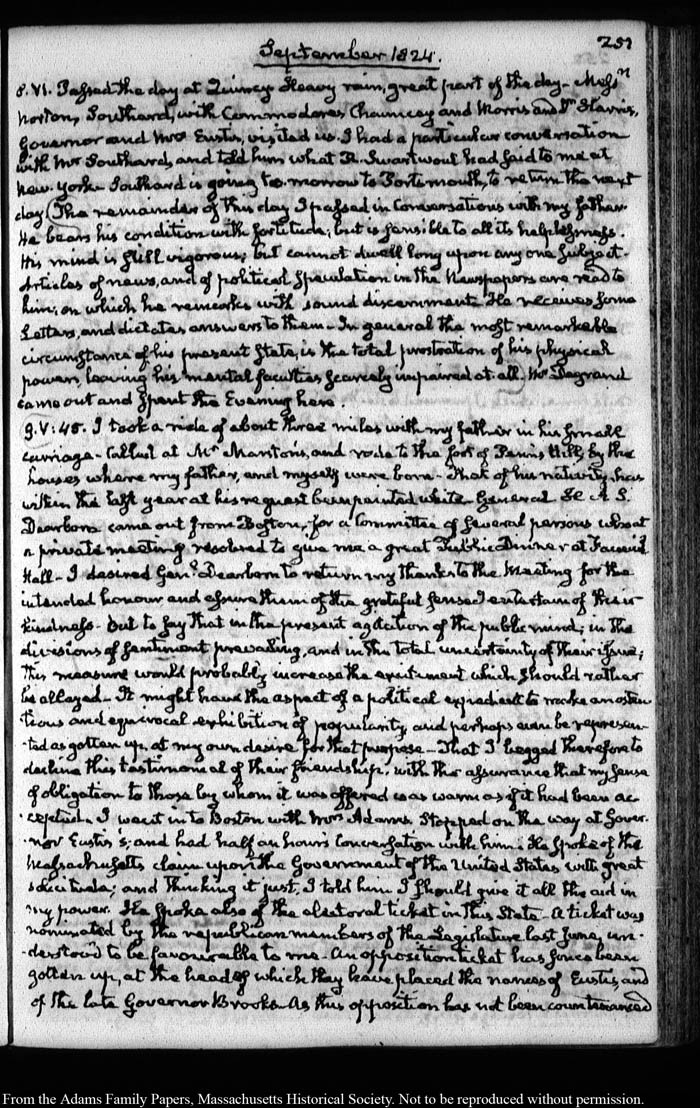 September 1824.
251
8. VI. Passed the day at Quincy. Heavy rain, great part of the day— Messrs
Norton, Southard, with Commodores Chauncey and Morris and Dr Harris,
Governor and Mrs Eustis, visited us. I had a particular conversation
with Mr Southard, and told him what R. Swartwout had said to me at
New York— Southard is going to-morrow to Portsmouth, to return the next
day. (The remainder of this day I passed in Conversations with my father.
He bears his condition with fortitude; but is sensible to all its helplessness.
His mind is still vigorous; but cannot dwell long upon any one subject.
Articles of news, and of political speculation in the Newspapers are read to
him; on which he remarks with sound discernment. He receives some
Letters, and dictates answers to them— In general the most remarkable
circumstance of his present State, is the total prostration of his physical
powers, leaving his mental faculties scarcely impaired at all. Mr Degrand
came out and spent the Evening here.
9. V:45. I took a ride of about three miles with my father in his small
carriage— Called at Mr Marston's, and rode to the foot of Penn's Hill, by the
houses where my father, and myself were born— That of his nativity, has
within the last year at his request been painted white— General H. A. S.
Dearborn came out from Boston, for a Committee of several persons who at
a private meeting resolved to give me a great Public Dinner at Faneuil
Hall— I desired Genl Dearborn to return my thanks to the Meeting for the
intended honour and assure them of the grateful sense I entertain of their
kindness— But to say that in the present agitation of the public mind; in the
divisions of sentiment prevailing, and in the total uncertainty of their issue;
this measure would probably increase the excitement which should rather
be allayed— It might have the aspect of a political expedient to make an osten
tious and equivocal exhibition of popularity, and perhaps even be represen-
-ted as gotten up, at my own desire for that purpose— That I begged therefore to
decline this testimonial of their friendship, with the assurance that my sense
of obligation to those by whom it was offered was as warm as if it had been ac
-cepted. I went in to Boston with Mrs Adams. Stopped on the way at Gover-
nor Eustis's; and had half an hour's Conversation with him. He spoke of the
Massachusetts claim upon the Government of the United States with great
solicitude; and thinking it just, I told him I should give it all the aid in
my power. He spoke also of the electoral ticket in this State— A ticket was
nominated by the republican members of the Legislature last June, un-
-derstood to be favourable to me— An opposition ticket has since been
gotten up, at the head of which they have placed the names of Eustis, and
of the late Governor Brooks— As this opposition has not been countenanced
From the Adams Family Papers, Massachusetts Historical Society. Not to be reproduced without permission.